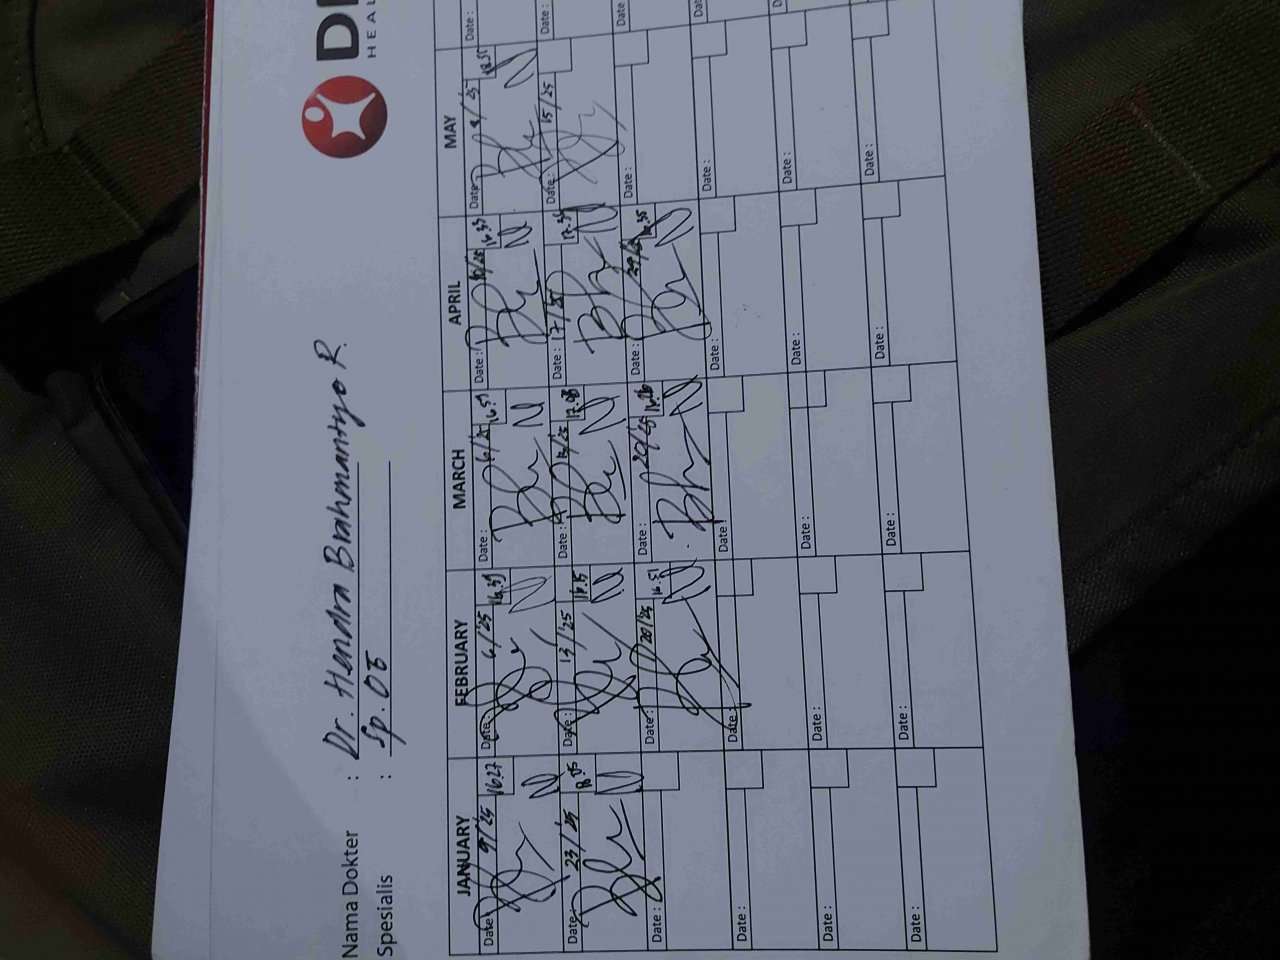 Nama Dokter : Dr. Hendra Brahmantyo R.
Spesialis : Sp. OT
JANUARY FEBRUARY MARCH APRIL MAY
Date: 9/25 1627 Date: 6/25 16.39 Date: 6/25 16.57 Date: 10/25 16.33 Date: 8/25 18.51
Date: 23/25 18.05 Date: 13/25 17.15 Date: 13/25 17.08 Date: 17/25 17.34 Date: 15/25
Date: Date: 20/25 16.51 Date: 20/25 16.26 Date: 29/25 16.35 Date:
Date: Date: Date: Date: Date:
Date: Date: Date: Date: Date:
Date: Date: Date: Date: Date: